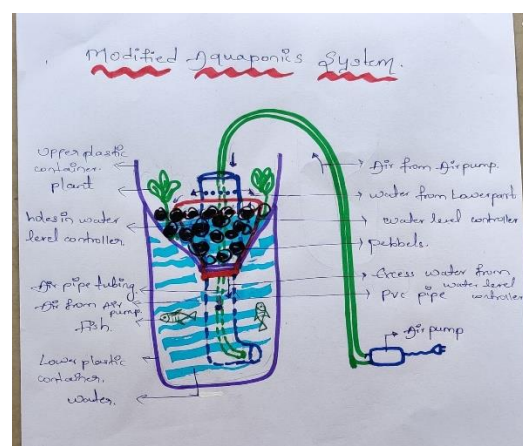 Modified Aquaponics System.
Upper plastic
container.
plant
holes in water
level controller.
Air pipe tubing
Air from Air
pump.
Fish.
Lower plastic
container.
water.
Air from Airpump.
water from Lowerpart
water level controller
pebbels.
Excess water from
water level
controller
PVC pipe
Air pump